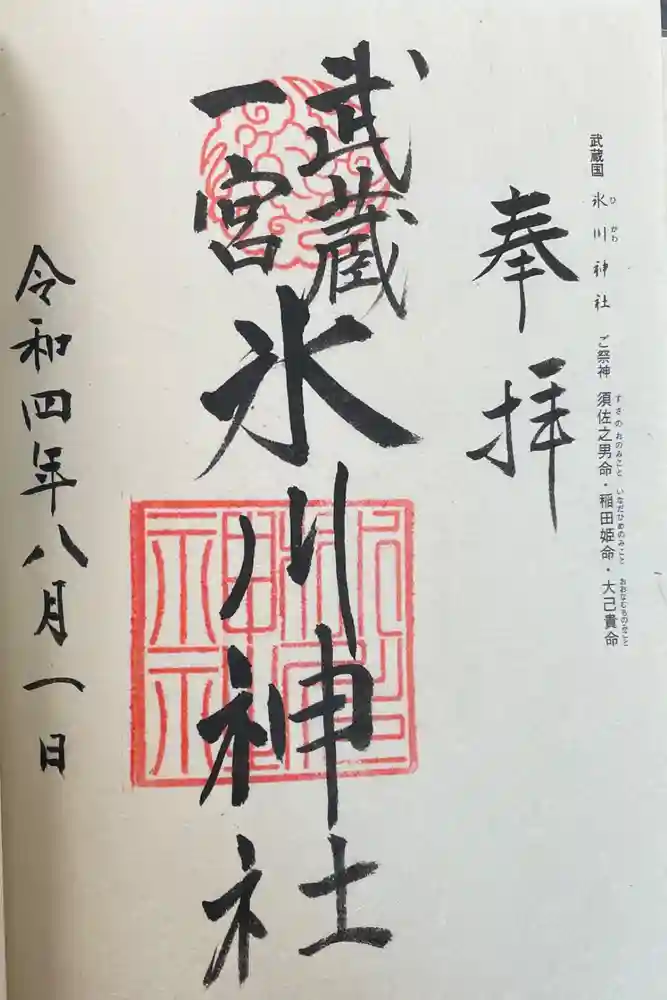 武蔵国 氷川神社 ご祭神 須佐之男命・稲田姫命・大己貴命
ひかわ すさのおのみこと いなだひめのみこと おおなむちのみこと
奉拝
武蔵
一宮
氷川神社
令和四年八月一日